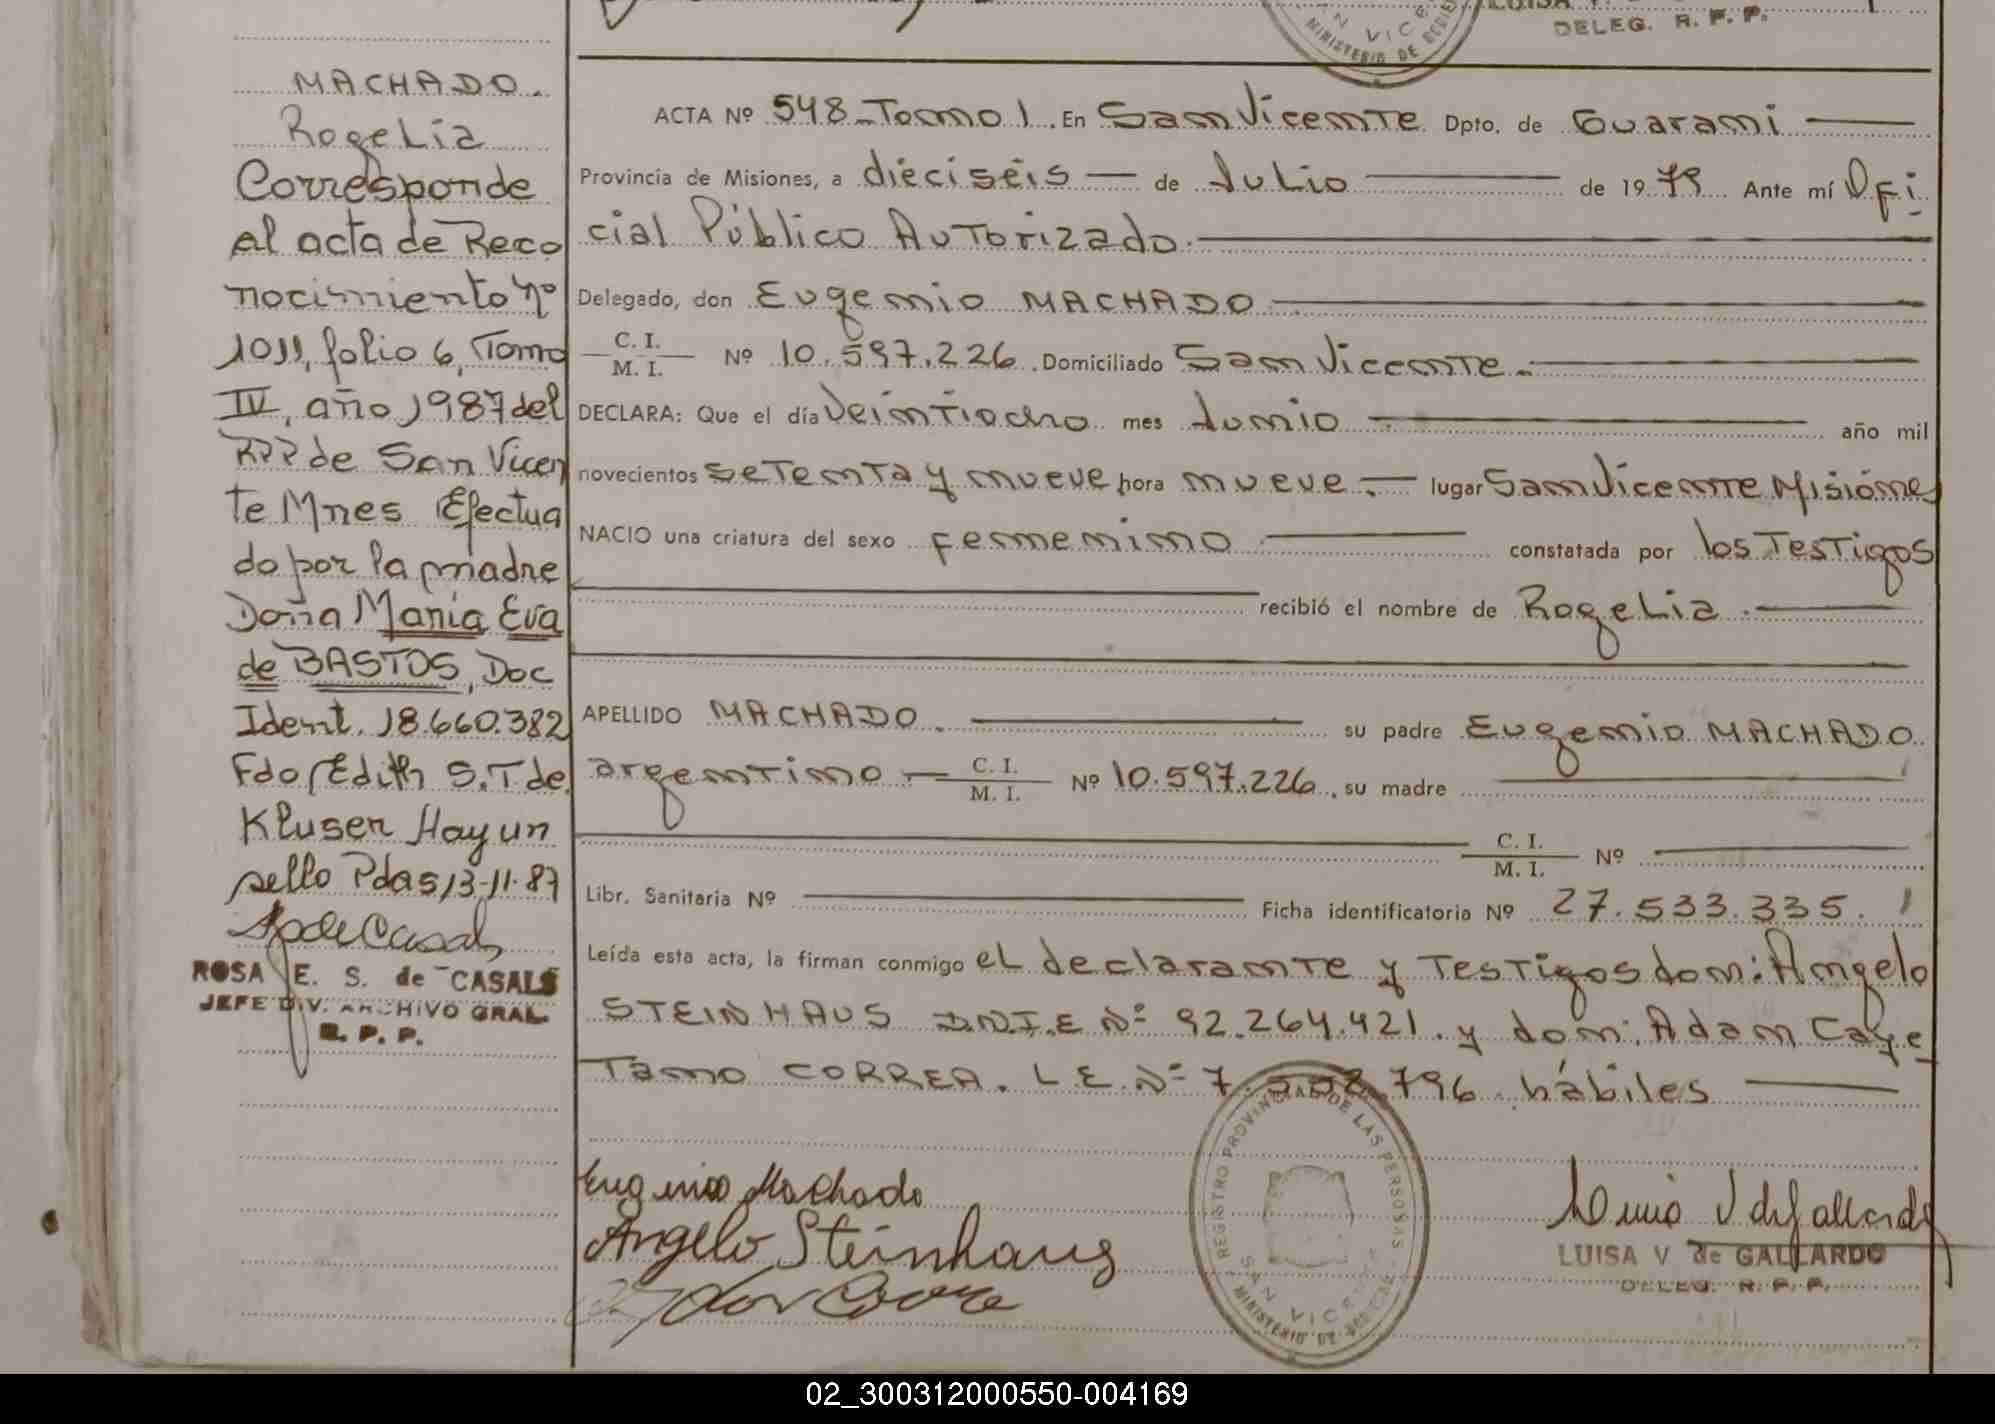 DELEG. R. P. P.
MINISTERIO DE
MACHADO.
Rogelia
Corresponde
al acta de Reco
nocimiento nº
1011, folio 6, Tomo
IV, año 1987 del
RPP de San Vicen
te Mnes Efectua
do por la madre
Doña María Eva
de BASTOS, Doc
Ident. 18.660.382
Fdo/Edith S.T. de
Kluser Hay un
sello Pdas 13-11-87
ROSA E. S. de CASALS
JEFE DIV. ARCHIVO GRAL.
R. P. P.
ACTA Nº 548 - Tomo I. En San Vicente Dpto. de Guarani
Provincia de Misiones, a dieciséis de Julio de 1979 Ante mí Ofi
cial Público Autorizado.
Delegado, don Eugenio MACHADO
C. I.
M. I. Nº 10.597.226. Domiciliado San Vicente.
DECLARA: Que el día Veintiocho mes Junio año mil
novecientos setenta y nueve hora nueve. lugar San Vicente Misiónes
NACIO una criatura del sexo femenino constatada por los Testigos
recibió el nombre de Rogelia
APELLIDO MACHADO. su padre Eugenio MACHADO
argentino C. I.
M. I. Nº 10.597.226, su madre
C. I.
M. I. Nº
Libr. Sanitaria Nº Ficha identificatoria Nº 27.533.335.
Leída esta acta, la firman conmigo el declarante y Testigos don: Angelo
STEINHAUS D.N.I.E Nº 92.264.421. y don: Adam Caye
Tano CORREA. L E. Nº 7.558.796 hábiles
Eugenio Machado
Angelo Steinhaus
REGISTRO PROVINCIAL DE LAS PERSONAS
SAN VICENTE
MINISTERIO DE GOBIERNO
LUISA V de GALLARDO
DELEG. R. P. P.
02_300312000550-004169